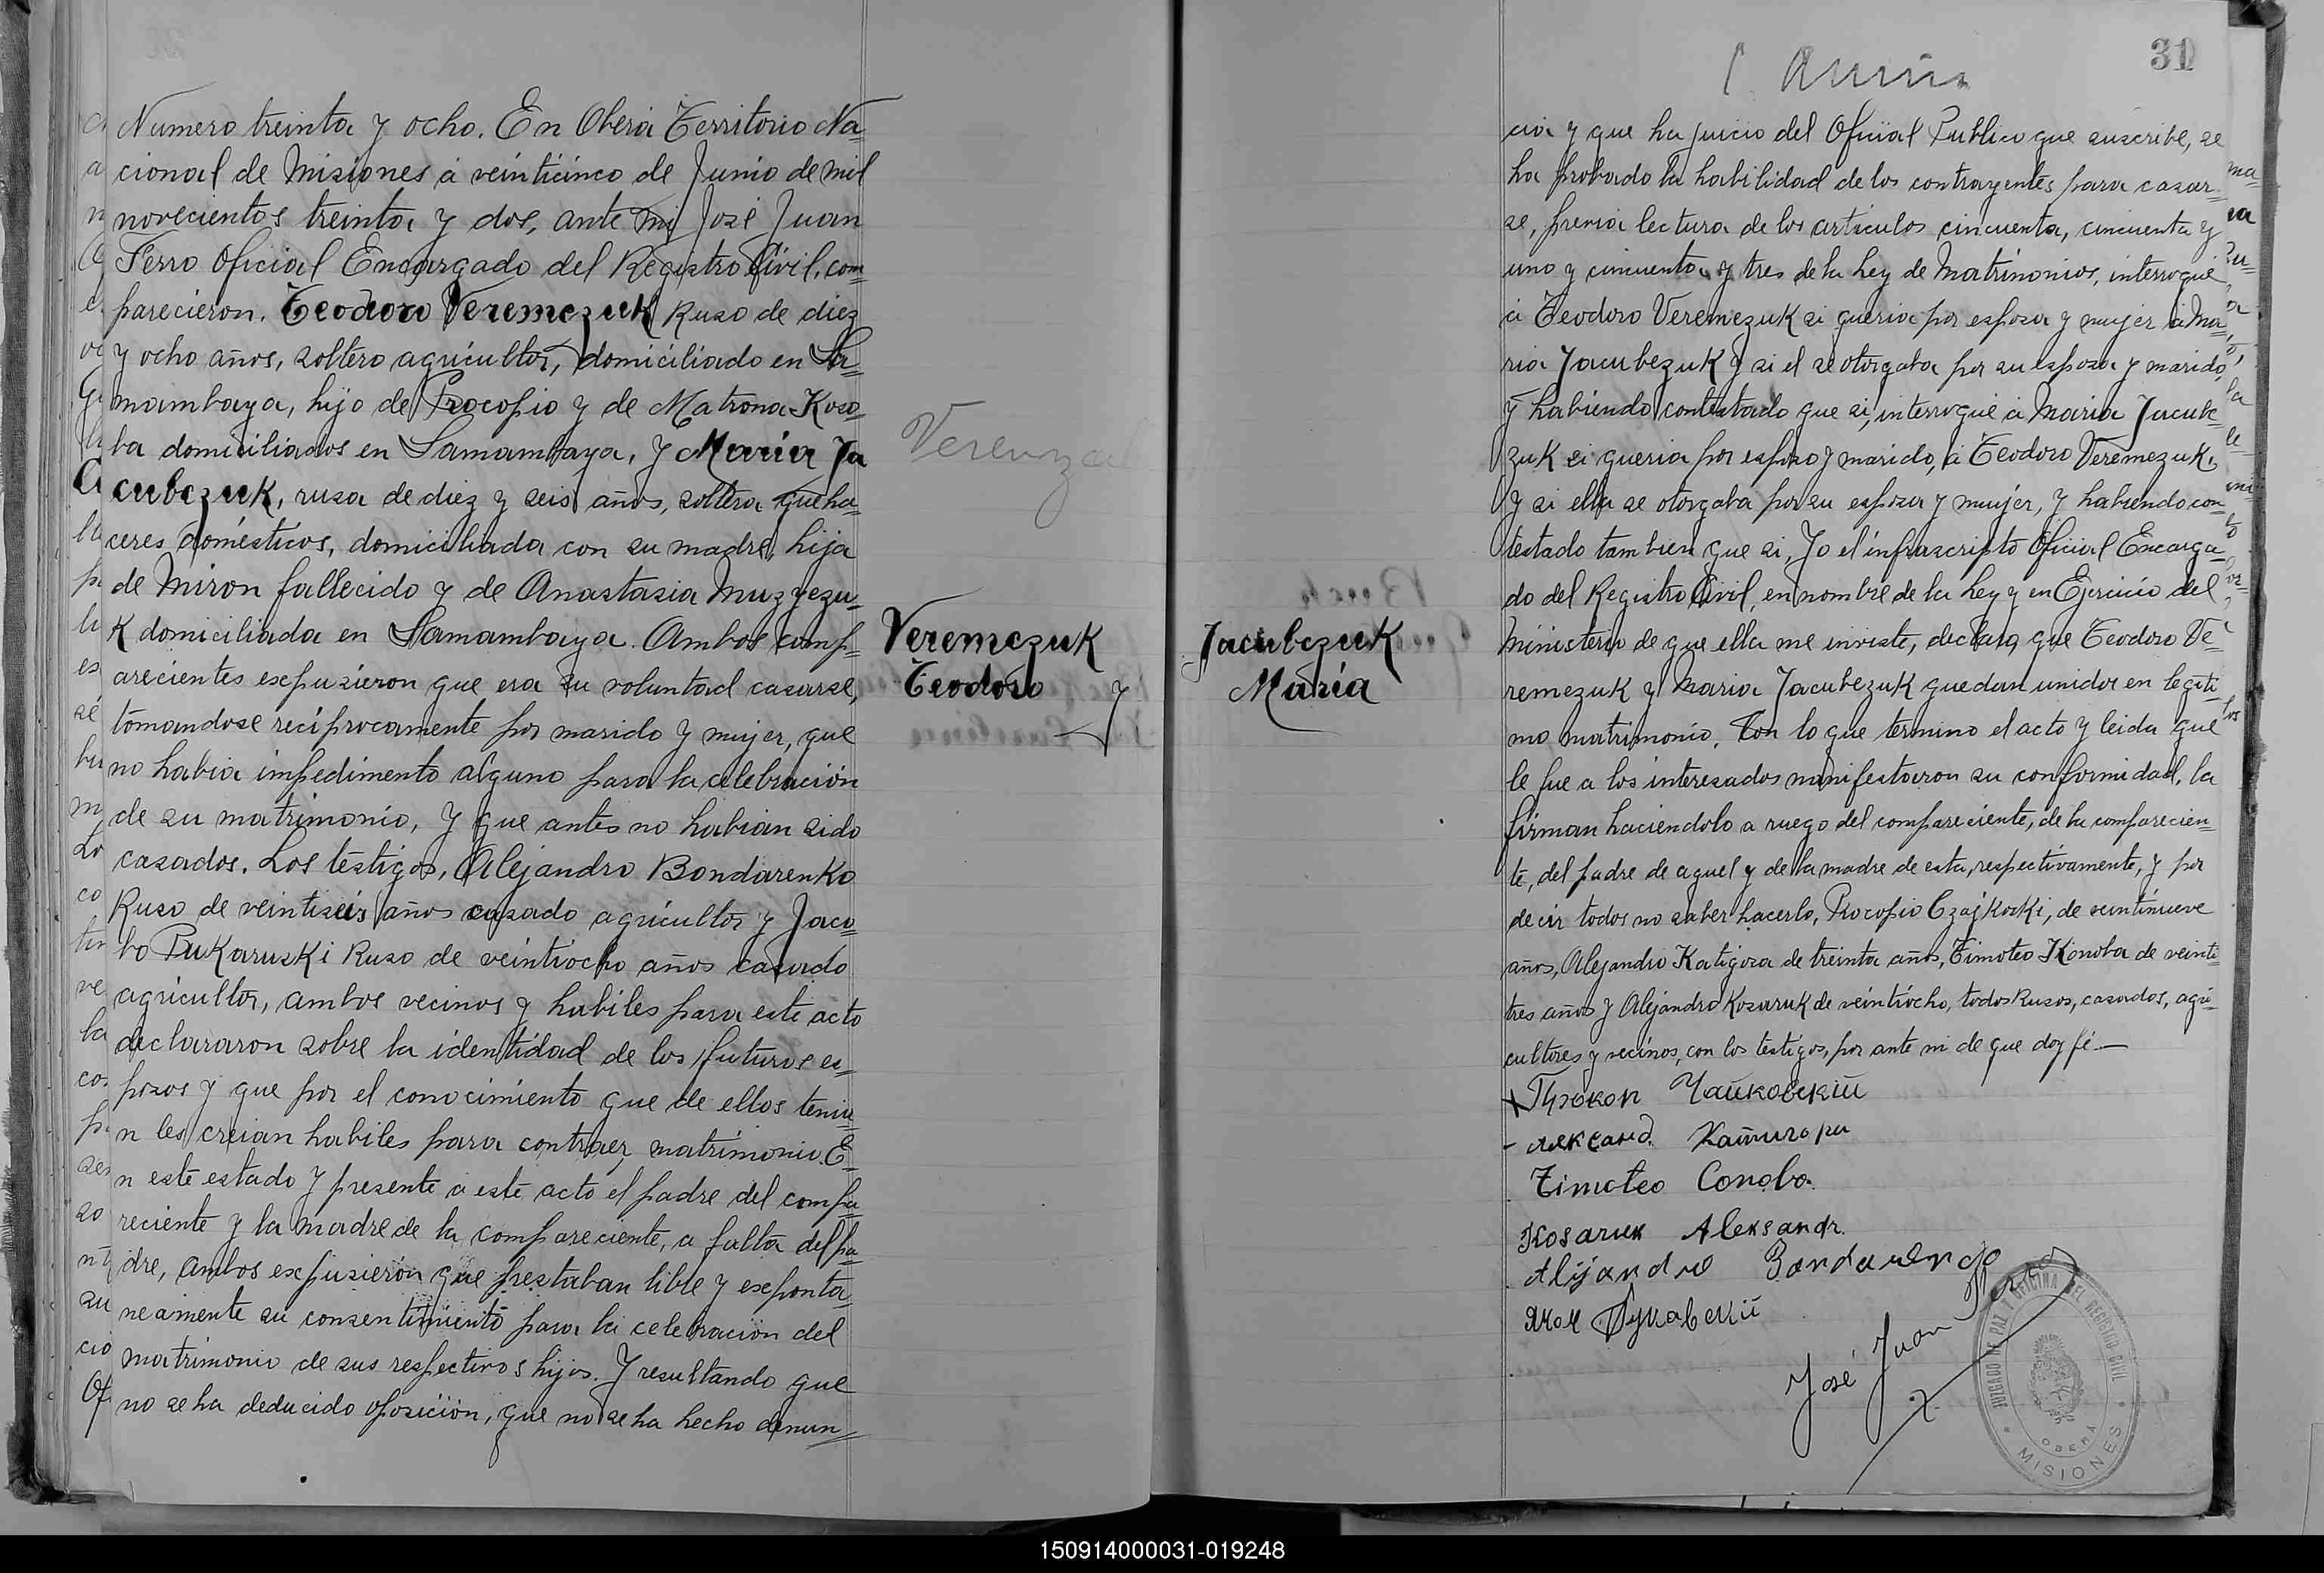 Numero treinta y ocho. En Oberá Territorio Na=
cional de Misiones á veinticinco de Junio de mil
novecientos treinta y dos, ante mi José Juan
Ferro Oficial Encargado del Registro Civil, com=
parecieron. Teodoro Veremczuk Ruso de diez
y ocho años, soltero agricultor, domiciliado en Sa=
mambaya, hijo de Procopio y de Matrona Koso=
ba domiciliados en Samambaya, y María Ja
cubczuk, rusa de diez y seis años, soltera queha=
ceres domésticos, domiciliada con su madre, hija
de Miron fallecido y de Anastasia Muzyezu=
k domiciliada en Samambaya. Ambos comp=
arecientes expusieron que era su voluntad casarse,
tomandose reciprocamente por marido y mujer, que
no habia impedimento alguno para la celebración
de su matrimonio, y que antes no habian sido
casados. Los testigos, Alejandro Bondarenko
Ruso de veintiseis años casado agricultor y Jaco=
bo Pukaruski Ruso de veintiocho años casado
agricultor, ambos vecinos y habiles para este acto
declararon sobre la identidad de los futuros es=
posos y que por el conocimiento que de ellos tenia
n les creian habiles para contraer matrimonio. E=
n este estado y presente a este acto el padre del compa=
reciente y la madre de la compareciente, a falta del pa=
dre, ambos expusieron que prestaban libre y esponta=
neamente su consentimiento para la celebracion del
matrimonio de sus respectivos hijos. Y resultando que
no se ha deducido oposición, que no se ha hecho denun=
Veremczuk
Teodoro y
Jacubczuk
María
31
cia y que ha juicio del Oficial Publico que suscribe, se
ha probado la habilidad de los contrayentes para casar=
se, previa lectura de los artículos cincuenta, cincuenta y
uno y cincuenta y tres de la Ley de Matrimonios, interrogué
á Teodoro Veremezuk si queria por esposa y mujer á Ma=
ria Jacubezuk y si el se otorgaba por su esposo y marido,
y habiendo contestado que si, interrogué á Maria Jacube=
zuk si queria por esposo y marido, á Teodoro Veremezuk,
y si ella se otorgaba por su esposa y mujer, y habiendo con=
testado tambien que si, Yo el infrascripto Oficial Encarga=
do del Registro Civil, en nombre de la Ley y en Ejercicio del
ministerio de que ella me inviste, declaro, que Teodoro Ve=
remezuk y Maria Jacubezuk quedan unidos en legiti=
mo matrimonio. Con lo que termino el acto y leida que
le fue a los interesados manifestaron su conformidad, la
firman haciendolo a ruego del compareciente, de la comparecien=
te, del padre de aquel y de la madre de esta, respectivamente, y por
decir todos no saber hacerlo, Procopio Czajkoski, de veintinueve
años, Alejandro Katigora de treinta años, Timoteo Konoba de veinti=
tres años y Alejandro Kosaruk de veintiocho, todos Rusos, casados, agri=
cultores y vecinos, con los testigos, por ante mi de que doy fé.—
Прокоп Чайковскій
Александ. Катигора
Timoteo Conoba.
Kosaruk Aleksandr.
Alijandro Bondarenco
José Juan Ferro
JUZGADO DE PAZ Y OFICINA DEL REGISTRO CIVIL
OBERÁ
MISIONES
150914000031-019248